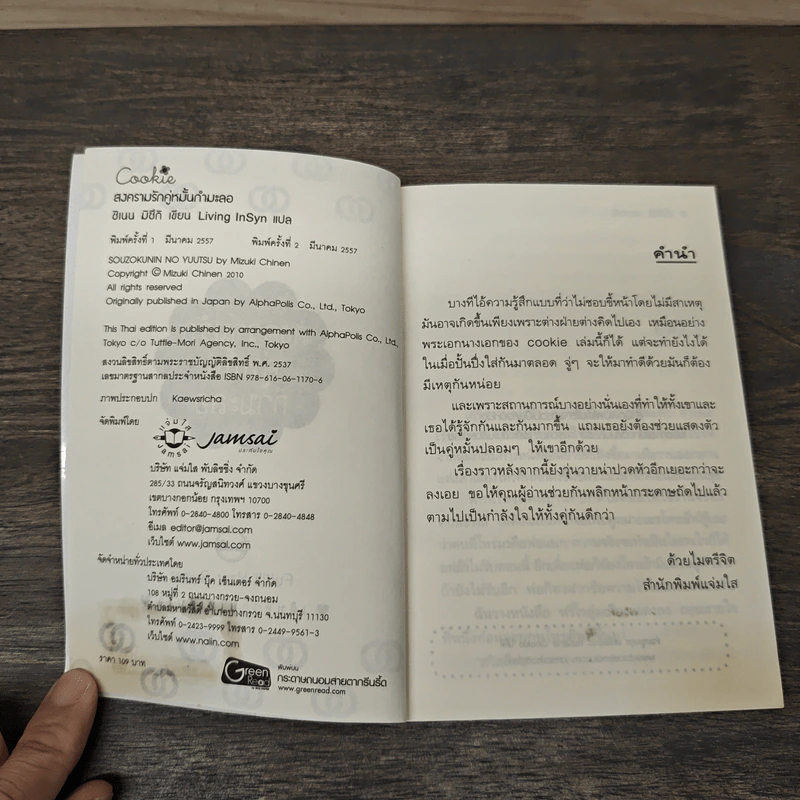 Cookie
สงครามรักคู่หมั้นกำมะลอ
ชิเนน มิซึกิ เขียน Living InSyn แปล
พิมพ์ครั้งที่ 1 มีนาคม 2557 พิมพ์ครั้งที่ 2 มีนาคม 2557
SOUZOKUNIN NO YUUTSU by Mizuki Chinen
Copyright © Mizuki Chinen 2010
All rights reserved
Originally published in Japan by AlphaPolis Co., Ltd., Tokyo
This Thai edition is published by arrangement with AlphaPolis Co., Ltd.,
Tokyo c/o Tuttle-Mori Agency, Inc., Tokyo
สงวนลิขสิทธิ์ตามพระราชบัญญัติลิขสิทธิ์ พ.ศ. 2537
เลขมาตรฐานสากลประจำหนังสือ ISBN 978-616-06-1170-6
ภาพประกอบปก Kaewsricha
จัดพิมพ์โดย
แจ่มใส Jamsai
jamsai
บริษัท แจ่มใส พับลิชชิ่ง จำกัด
285/33 ถนนจรัญสนิทวงศ์ แขวงบางขุนศรี
เขตบางกอกน้อย กรุงเทพฯ 10700
โทรศัพท์ 0-2840-4800 โทรสาร 0-2840-4848
อีเมล editor@jamsai.com
เว็บไซต์ www.jamsai.com
จัดจำหน่ายทั่วประเทศโดย
บริษัท อมรินทร์ บุ๊ค เซ็นเตอร์ จำกัด
108 หมู่ที่ 2 ถนนบางกรวย-จงถนอม
ตำบลมหาสวัสดิ์ อำเภอบางกรวย จ.นนทบุรี 11130
โทรศัพท์ 0-2423-9999 โทรสาร 0-2449-9561-3
เว็บไซต์ www.naiin.com
ราคา 109 บาท
Green Read
พิมพ์บน
กระดาษถนอมสายตากรีนรี้ด
www.greenread.com
คำนำ
บางทีไอ้ความรู้สึกแบบที่ว่าไม่ชอบขี้หน้าโดยไม่มีสาเหตุ
มันอาจเกิดขึ้นเพียงเพราะต่างฝ่ายต่างคิดไปเอง เหมือนอย่าง
พระเอกนางเอกของ cookie เล่มนี้ก็ได้ แต่จะทำยังไงได้
ในเมื่อปั้นปึ่งใส่กันมาตลอด จู่ๆ จะให้มาทำดีด้วยมันก็ต้อง
มีเหตุกันหน่อย
และเพราะสถานการณ์บางอย่างนั่นเองที่ทำให้ทั้งเขาและ
เธอได้รู้จักกันและกันมากขึ้น แถมเธอยังต้องช่วยแสดงตัว
เป็นคู่หมั้นปลอมๆ ให้เขาอีกด้วย
เรื่องราวหลังจากนี้ยังวุ่นวายน่าปวดหัวอีกเยอะกว่าจะ
ลงเอย ขอให้คุณผู้อ่านช่วยกันพลิกหน้ากระดาษถัดไปแล้ว
ตามไปเป็นกำลังใจให้ทั้งคู่กันดีกว่า
ด้วยไมตรีจิต
สำนักพิมพ์แจ่มใส